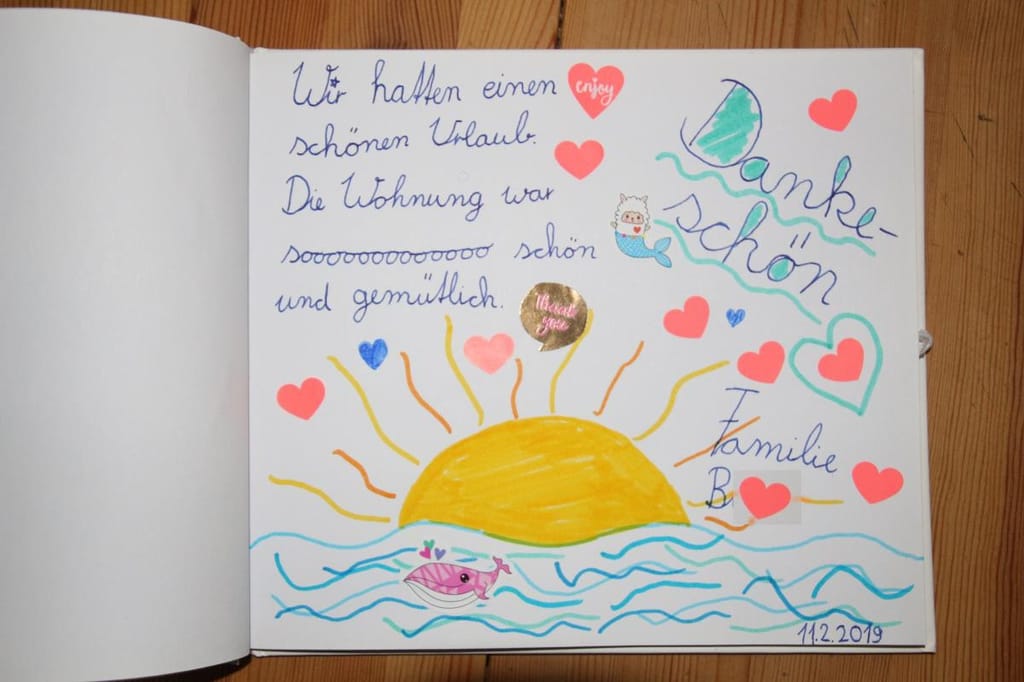 Wir hatten einen
enjoy
schönen Urlaub.
Die Wohnung war
sooooooooooooo schön
und gemütlich.
thank you
Danke-
schön
Familie
B
11.2.2019